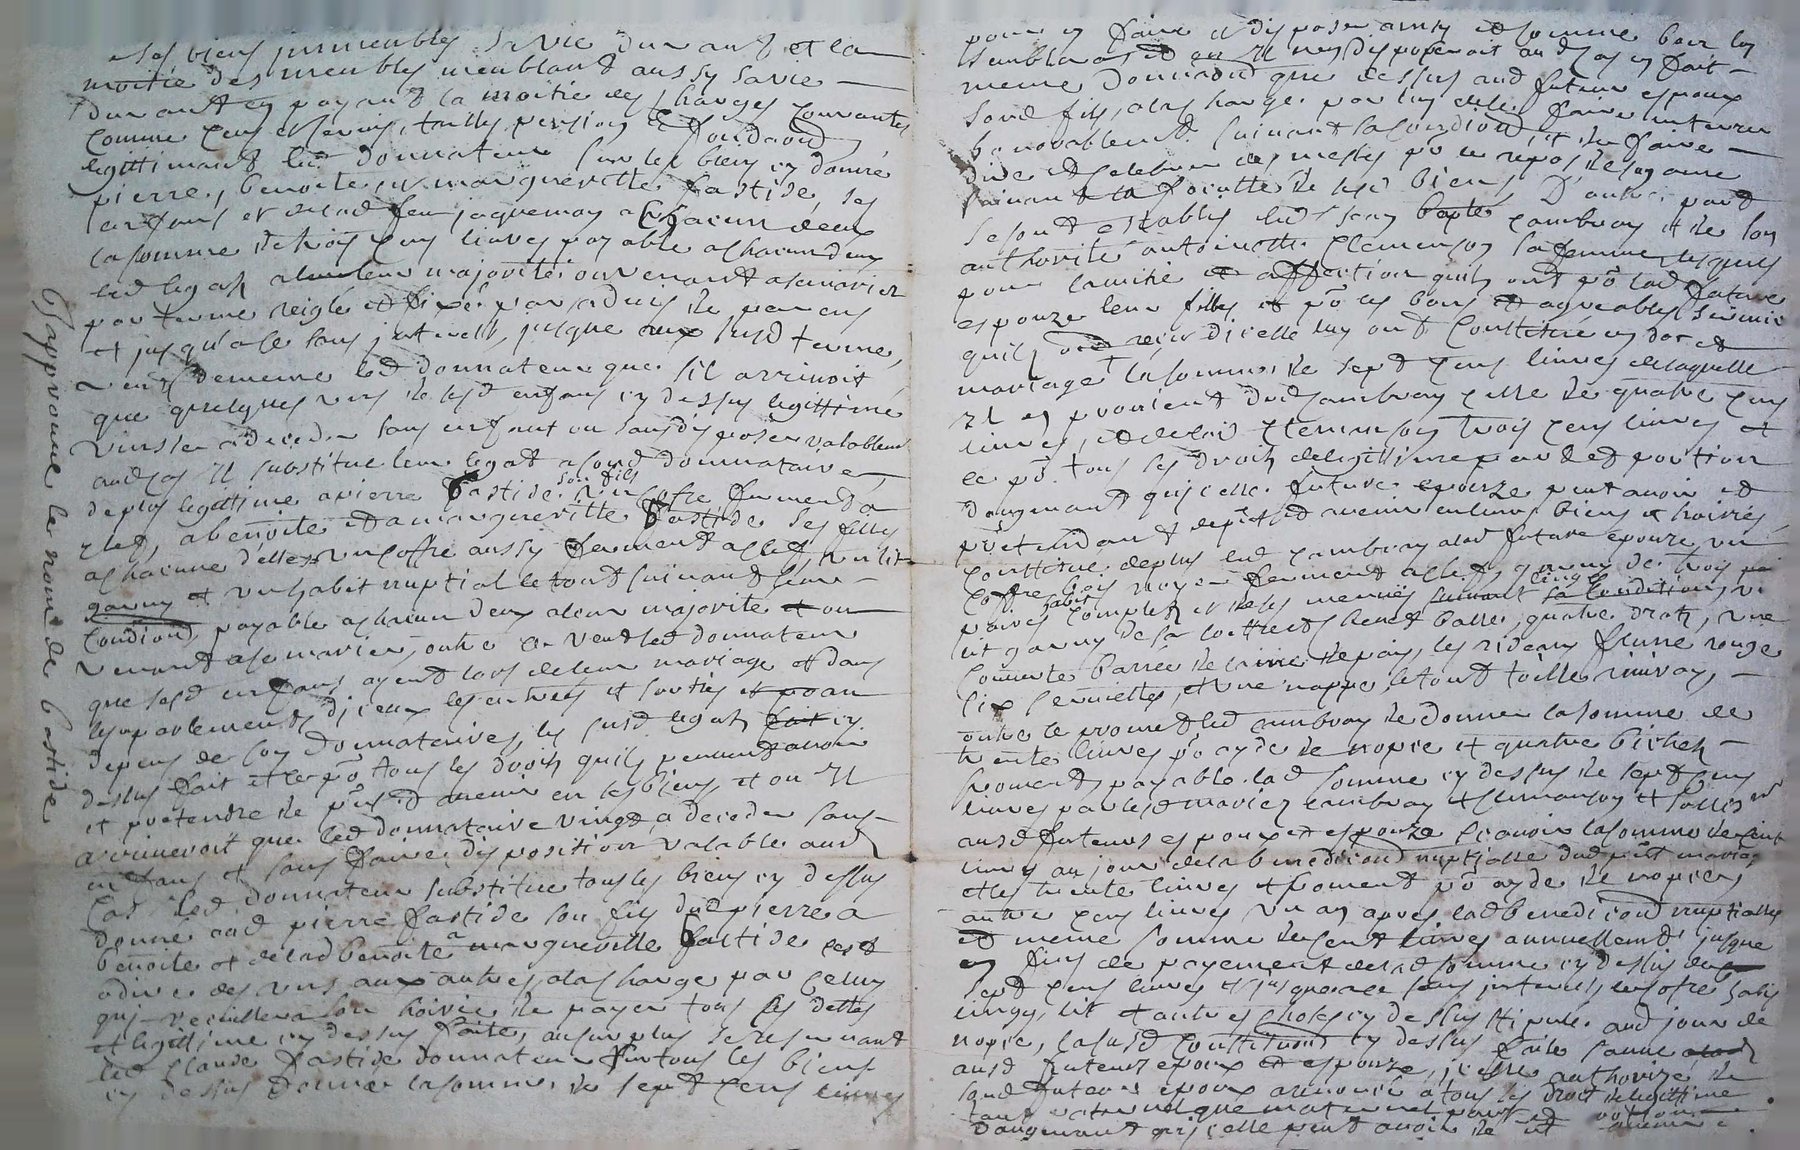 ses biens immeubles sa vie durant et la
moitié des meubles meublant aussy sa vie
durant en payant la moitié des charges courantes
comme cens et servis, tailles, pension &
legitimaires led donnateur sur les biens cy donné
pierre, benoite et margueritte bastide, ses
enfans et de lad feu jaquemay a chacun deux
la somme de trois cens livres payable a chacun deux
led legat a leur majorité ou venant a se marier
par terme reiglé et fixé par advis de parens
et jusqu'a ce sans interest, jusque aux susd terme,
veut de meme led donnateur que s'il arrivoit
que quelques uns de sesd enfans cy dessus legittimé
vinsse a deceder sans enfant ou sans disposer valablem
aud cas il substitue leur legat a sond donnataire,
de plus legittime a pierre bastide son fils un coffre fermant a
clef, a benoite et a margueritte bastide ses filles
a chacune d'elles un coffre aussy fermant a clef, un lit
garny et un habit nuptial le tout suivant leur
condiond payable a chacun deux a leur majorité et ou
venant a se marier, outre ce veut led donnateur
que sesd enfans ayent lors de leur mariage et dans
les apartements d'iceux les entrées et sorties
depens de son donnataire, les susd legat cy
dessus fait et ce pō tous les droits quils peuvent avoir
et pretendre de pnt et avenir en ses biens, et ou il
arriveroit que led donnataire vingt a deceder sans
enfans et sans faire disposition valable aud
cas led donnateur substitue tous les biens cy dessus
donné aud pierre bastide son fils dud pierre a
benoite et de lad benoite a margueritte bastide cest
a dire des uns aux autres, a la charge par celuy
qui recuillera son hoirie de payer tous ses dettes
et legittime cy dessus faite, au surplus se reservant
led claude bastide donnateur sur tous les biens
cy dessus donné la somme de sept cens livres
J'approuve le nom de bastide
pour en faire et disposer ainsy et comme bon luy
semblera et ou il n'en disposeroit aud cas en fait
meme donnaond que dessus aud futur espoux
sond fils, a la charge par luy de le faire enterrer
honorablement suivant sa condiond, et de faire
dire et celebrer des messes pō le repos de son ame
suivant la faculté de sesd biens D'autre part
se sont establis led sieur cambray et de son
authorité antoinette clemenson sa femme, lesquels
pour l'amitié et affection quils ont pō lad future
espouze leur fille et pō les bons et agreables services
quils ont reçu d'icelle luy ont constitué en dot et
mariage la somme de sept cens livres de laquelle
il en provient dud cambray celle de quatre cens
livres, et de lad clemenson trois cens livres et
ce pō tous ses droits de legittime part et portion
d'augment qu'icelle future epouze peut avoir et
pretendant de pnt et avenir en leurs biens et hoiries,
constitue de plus led cambray a lad future epouze un
coffre bois noyer fermant a clef, garny de trois
paires habit complet et de ses menus linge suivant sa condition, un
lit garny de sa coettre, quatre draps, une
couverte barrée de laine de pais, les rideaux et une rouge
six serviettes, et une nappe, le tout toille
outre ce promet led cambray de donner la somme de
trente livres pō ayde de nopce et quatre bichets
froment, payable lad somme cy dessus de sept cens
livres par lesd mariez cambray et clemenson et
ausd futurs espoux et espouze sçavoir la somme de cent
livres au jour de la benediciond nuptialle dud pnt mariage
et les trente livres et froment pō ayde de nopces
autre cens livres un an apres lad benediciond nuptialle
et meme somme de cent livres annuellement jusque
en fins de payement de lad somme cy dessus de
sept cens livres et jusque a ce sans interest, le cofre habis
linge, lit et autres choses cy dessus stipulé aud jour de
nopce, la susd constitution cy dessus faite
ausd futeurs epoux et espouze, icelle authorizé de
sond futeur epoux a renoncé a tous ses droit de legittime
tant paternel que maternel part et portion
d'augment qu'icelle peut avoir de pnt et avenir